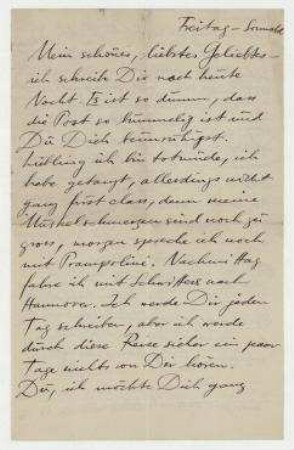 Freitag – Sonnab
Mein schönes, liebstes Geliebtes –
ich schreib Dir noch heute
Nacht. Es ist so dumm, dass
die Post so bummelig ist und
Du Dich beunruhigst.
Liebling ich bin totmüde, ich
habe getanzt, allerdings nicht
ganz first class, denn meine
Muskelschmerzen sind noch zu
gross, morgen spreche ich noch
mit Prampolini. Nachmittag
fahre ich mit Schwitters nach
Hannover. Ich werde Dir jeden
Tag schreiben, aber ich werde
durch diese Reise sicher ein paar
Tage nichts von Dir hören.
Du, ich möchte Dich ganz